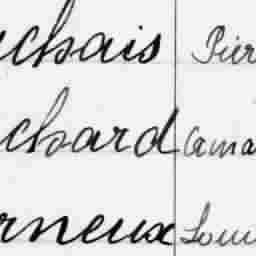 chais Pier
chard Ama
rneux Loui